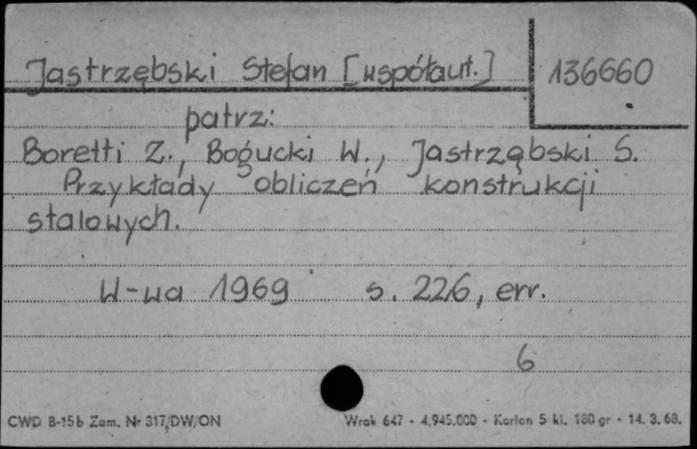 Jastrzębski Stefan [współaut.] 136660
patrz:
Boretti Z., Bogucki W., Jastrząbski S.
Przykłady obliczeń konstrukcji
stalowych.
W-wa 1969 s. 226, err.
6
CWD B-15b Zam. Nr 317/DW/ON Wrak 647 - 4.945.000 - Karton 5 kl. 180 gr - 14. 3. 68.